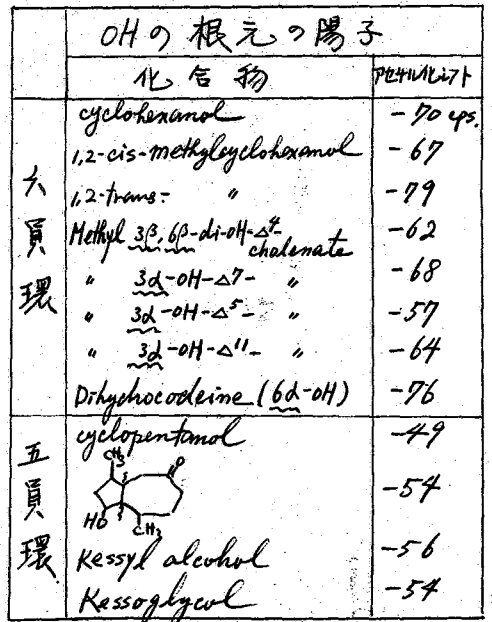 OHの根元の陽子
化合物 アセチル化シフト
六員環
cyclohexanol -70 cps.
1,2-cis-methylcyclohexanol -67
1,2-trans- 〃 -79
Methyl 3β,6β-di-OH-Δ4- cholenate -62
〃 3α-OH-Δ7- 〃 -68
〃 3α-OH-Δ5- 〃 -57
〃 3α-OH-Δ11- 〃 -64
Dihydrocodeine (6α-OH) -76
五員環
cyclopentanol -49
CH3 O HO CH3 -54
Kessyl alcohol -56
Kessoglycol -54